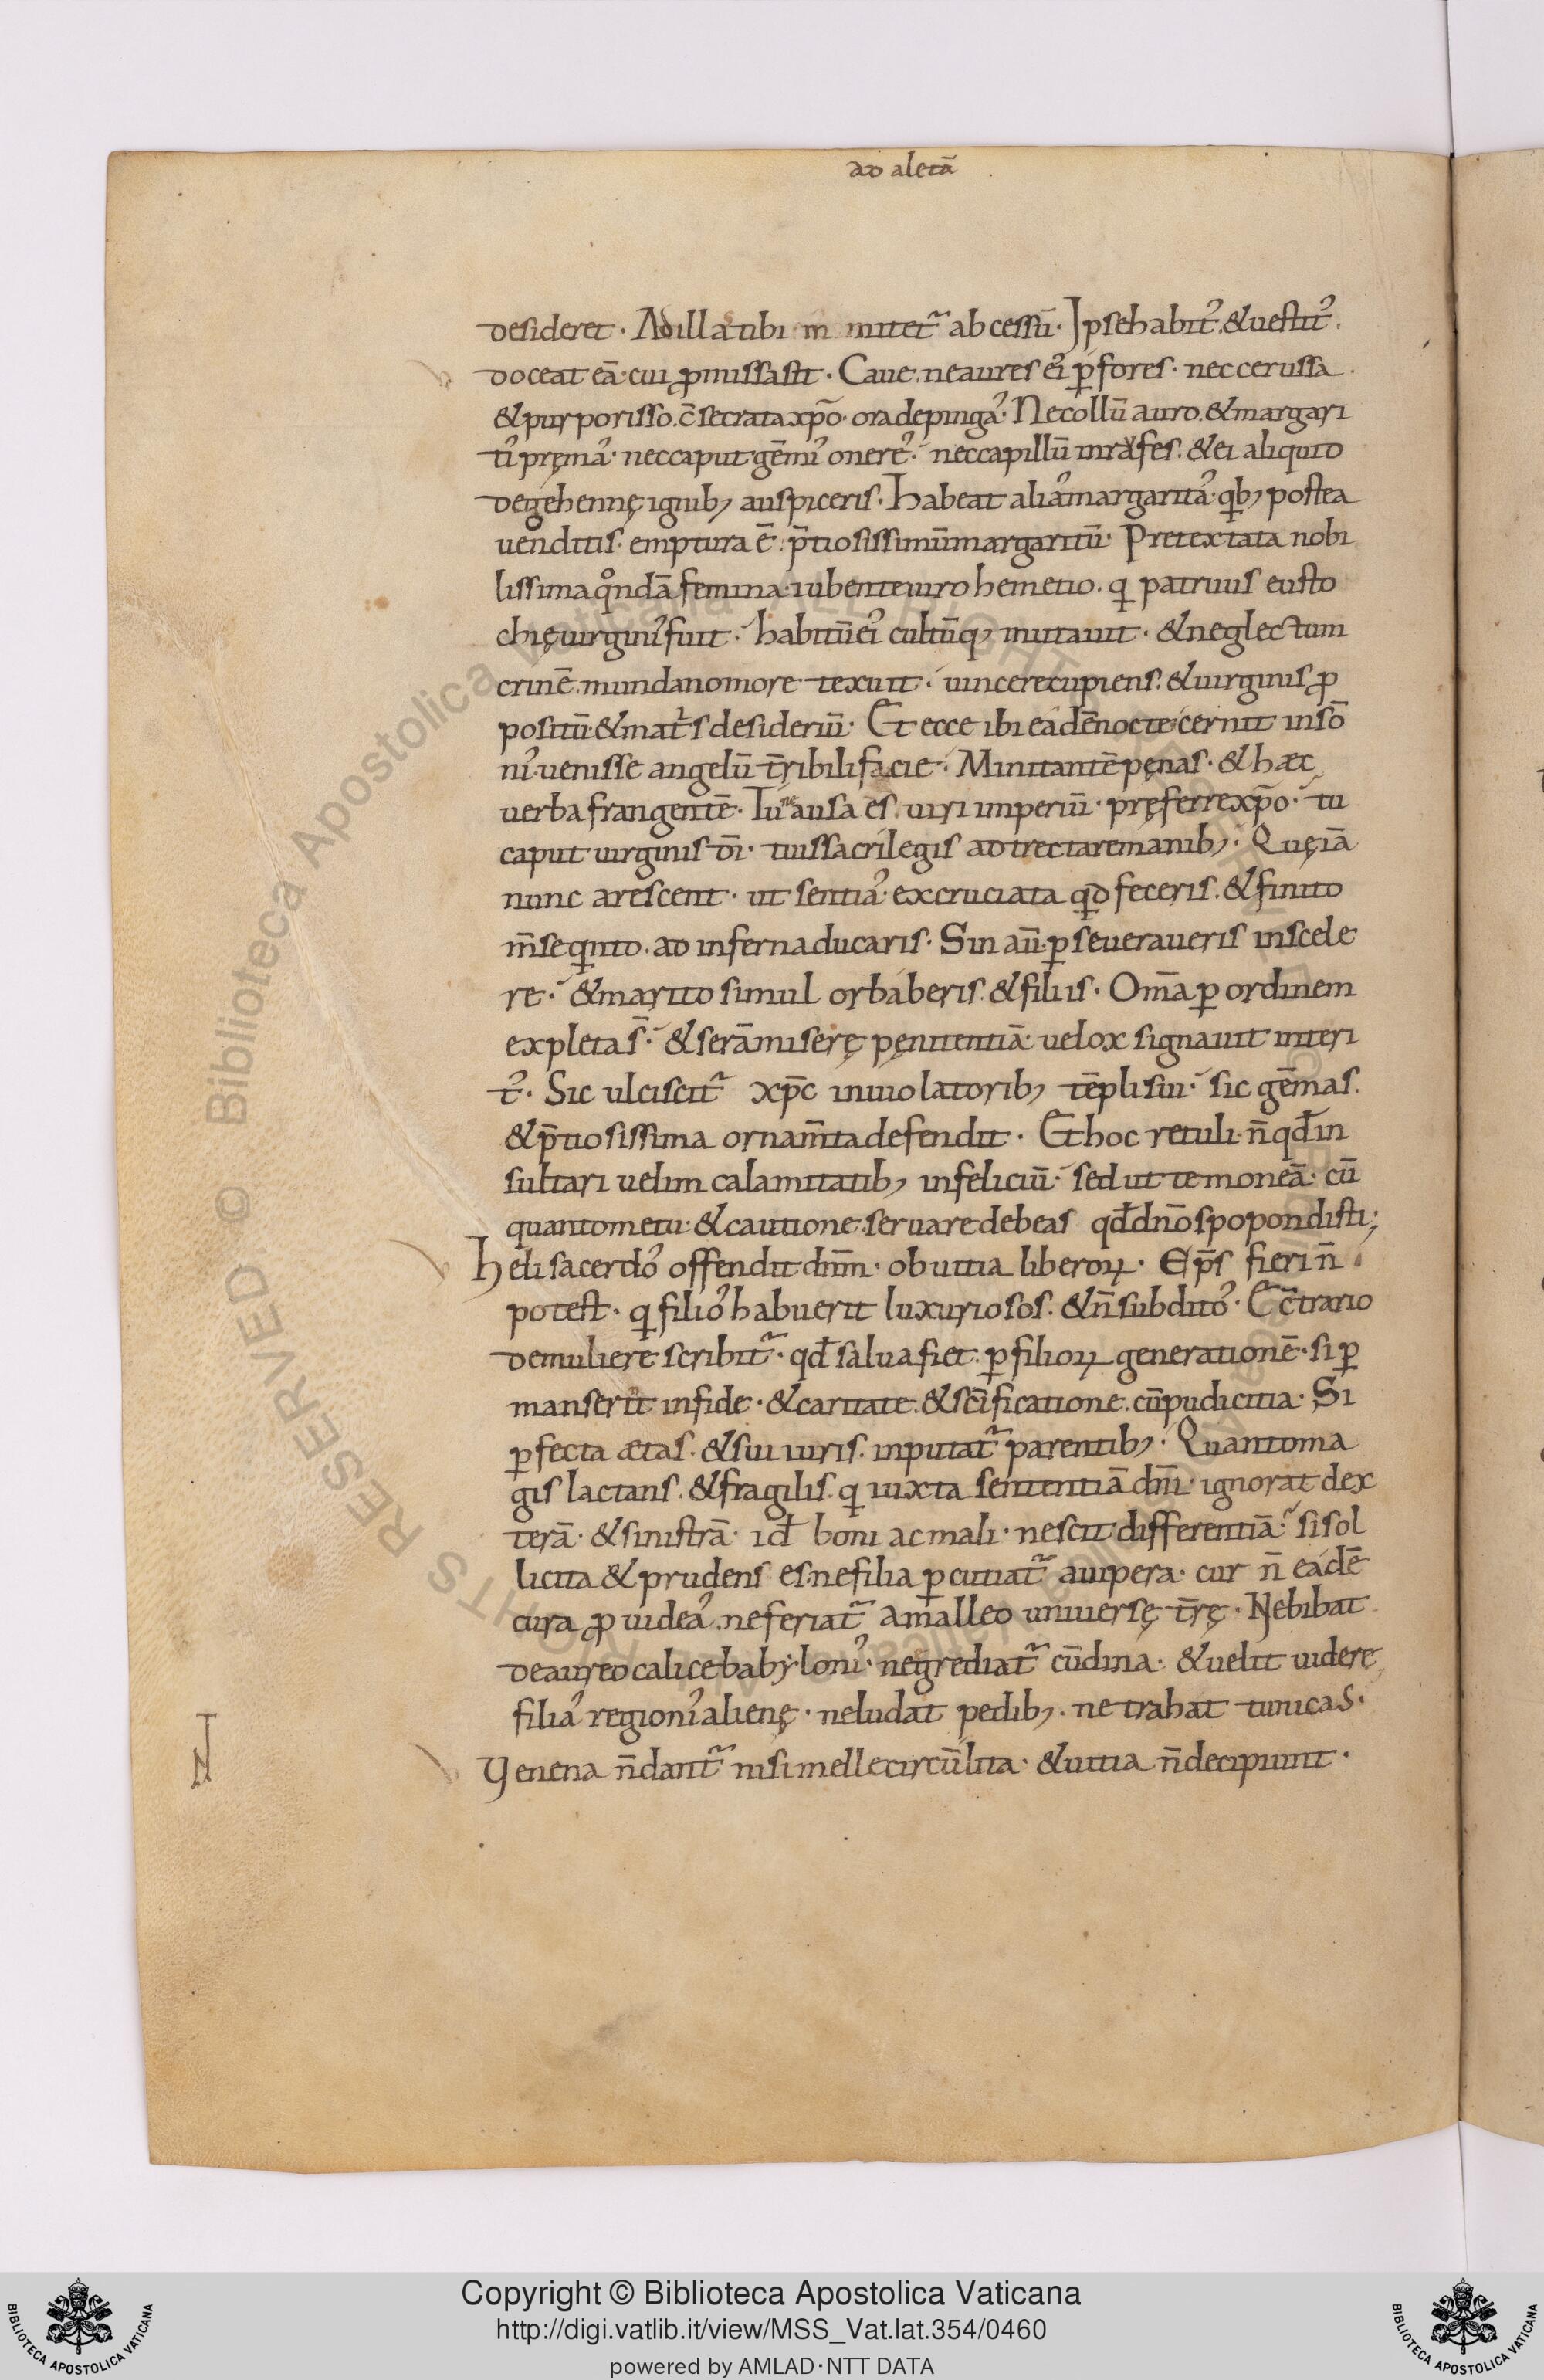 ad aletā
desideret· Ad illa tibi m mitet᷑ abcessū· Ipse habit᾿ & uestit᾿
doceat eā· cui ꝓmissa sit· Caue· ne aures ei᾿ ꝑfores· nec cerussa
& purporisso· c̄secrata xp̄o· ora depinga᾿· Ne collū auro· & margari
ti᾿ prema᾿· nec caput gēmi᾿ onere᾿· nec capillū inrufes· & ei aliquid
de gehennę ignib; auspiceris· Habeat alia᾿ margarita᾿· qb; postea
uenditis· emptura ē· p̄tiosissimū margaritū· Pretextata nobi
lissima qͦndā femina· iubente uiro hemetio· q patruus eusto
chię uirgini᾿ fuit· habitū ei᾿ cultūq; mutauit· & neglectum
crinē mundano more texuit· uincere cupiens· & uirginis ꝓ
positū· & matⁱs desideriū· Et ecce ibi eadē nocte cernit in sō
ni᾿· uenisse angelū t̄ribili facie· Minitantē pęnas· & hæc
uerba frangentē· Tune ausa es uiri imperiū· pręferre xp̄o· tu
caput uirginis dī· tuis sacrilegis adtrectare manib;· Quę iā
nunc arescent· ut sentia᾿ excruciata qd feceris· & finito
m̄se qnto· ad inferna ducaris· Sin aū· ꝑseueraueris in scele
re· & marito simul orbaberis· & filiis· Om̄a ꝑ ordinem
expleta s̄· & serā miserę pęnitentiā· uelox signauit interi
t᾿· Sic ulciscit᷑ xp̄c inuiolatorib; tēpli sui· sic gēmas·
& p̄tiosissima ornam̄ta defendit· Et hoc retuli· n̄ qd̄ in
sultari uelim calamitatib; infeliciū· sed ut te moneā· cū
quanto metu· & cautione· seruare debeas qd̄ dn̄o spopondisti;
Heli sacerdo᾿ offendit dn̄m· ob uitia liberoꝝ· Ep̄s fieri n̄
potest· q filio᾿ habuerit luxuriosos· & n̄ subdito᾿· E c̄trario
de muliere scribit᷑· qd̄ salua fiet· ꝑ filioꝝ generationē· si ꝑ
manserit in fide· & caritate· & sc̄ificatione· cū pudicitia· Si
ꝑfecta ætas· & sui iuris· inputat᷑ parentib;· Quanto ma
gis lactans· & fragilis· q iuxta sententiā dn̄i· ignorat dex
terā· & sinistrā· id̄ boni ac mali· nescit differentiā· si sol
licita & prudens es· ne filia ꝑcutiat᷑ a uipera· cur n̄ eadē
cura ꝓuidea᾿· ne feriat᷑ a malleo uniuersę t̄rę· Ne bibat
de aureo calice babyloni᾿· ne grediat᷑ cū dina· & uelit uidere
filia᾿ regioni᾿ alienę· ne ludat pedib;· ne trahat tunicas·
Uenena n̄ dant᷑ nisi melle circūlita· & uitia n̄ decipiunt·
© Biblioteca Apostolica Vaticana ALL RIGHTS RESERVED
Copyright © Biblioteca Apostolica Vaticana
http://digi.vatlib.it/view/MSS_Vat.lat.354/0460
powered by AMLAD·NTT DATA
BIBLIOTECA APOSTOLICA VATICANA
BIBLIOTECA APOSTOLICA VATICANA